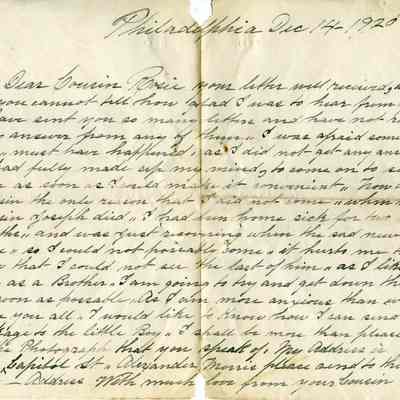 Philadelphia Dec 14 1920
Dear Cousin Rosie your letter well received,
you cannot tell how glad I was to hear from
have sent you so many letters and have not
answer from any of them„ I was afraid some
„ must have happened„ as I did not get any
had fully made up my mind, to come on to
as soon as I could make it convenient„ How
the only reason that I did not come „ when
Joseph died„ I had been home sick for two
„ and was just recovering when the sad news
„ so I could not possible come „ it hurts me
that I could not see the last of him „ as I
as a Brother„ I am going to try and get down
soon as possable„ As I am more anxious than
you all„ I would like to know how I can send
to the little Boy„ I shall be more than please
Photograph that you speak of, My Address is
Capitol St „ Alexander Morris please send to
Address With much love from your Cousin